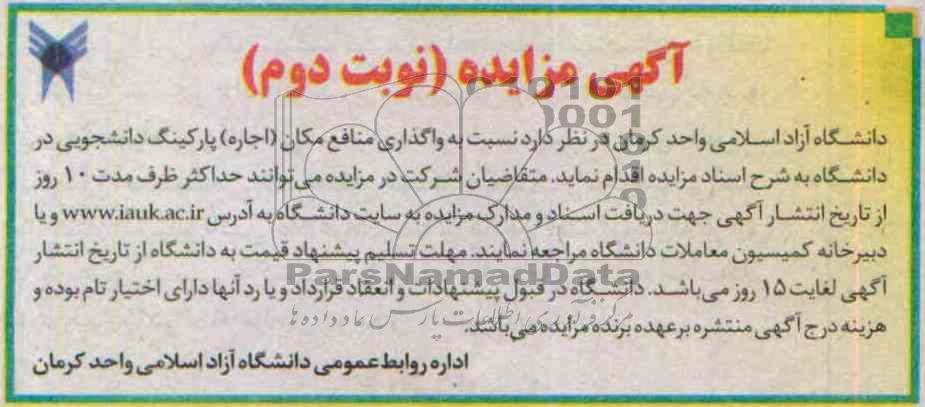 آگهی مزایده (نوبت دوم)
دانشگاه آزاد اسلامی واحد کرمان در نظر دارد نسبت به واگذاری منافع مکان (اجاره) پارکینگ دانشجویی در
دانشگاه به شرح اسناد مزایده اقدام نماید. متقاضیان شرکت در مزایده می‌توانند حداکثر ظرف مدت ۱۰ روز
از تاریخ انتشار آگهی جهت دریافت اسناد و مدارک مزایده به سایت دانشگاه به آدرس www.iauk.ac.ir و یا
دبیرخانه کمیسیون معاملات دانشگاه مراجعه نمایند. مهلت تسلیم پیشنهاد قیمت به دانشگاه از تاریخ انتشار
آگهی لغایت ۱۵ روز می‌باشد. دانشگاه در قبول پیشنهادات و انعقاد قرارداد و یا رد آنها دارای اختیار تام بوده و
هزینه درج آگهی منتشره بر عهده برنده مزایده می‌باشد.
اداره روابط عمومی دانشگاه آزاد اسلامی واحد کرمان
ParsNamadData